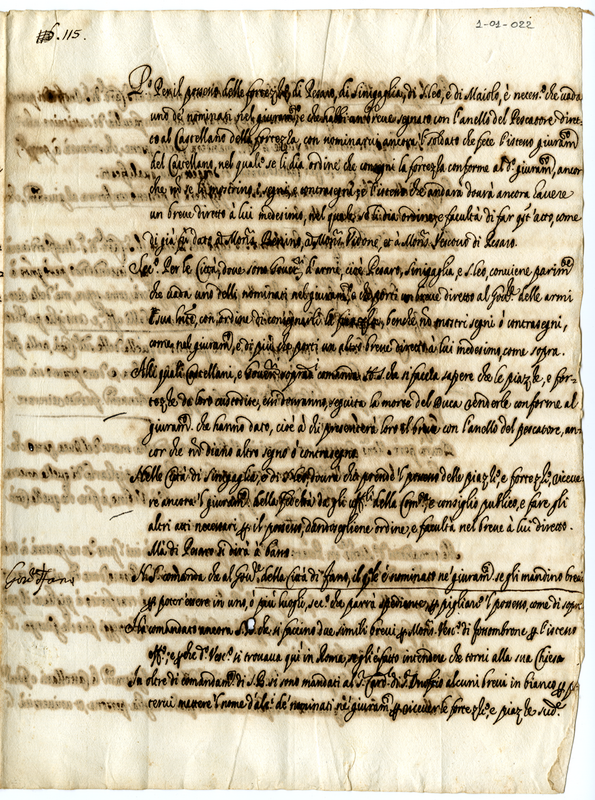 115.
1-01-022
P.º Per il possesso delle fortezze di Pesaro, di Sinigaglia, di S. Leo, e di Maiolo, è necess.º che vada
uno de nominati nel giuram.to e che habbi un breve segnato con l'anello del Pescatore diret-
to al Castellano delle fortezza, con nominarvi ancora 'l soldato che fece l'istesso giuram.to
del Castellano, nel quale se li dia ordine che consegni la fortezza conforme al d.º giuram.to, ancor
che nō se li mostrino i segni e contrasegni; e l'istesso che andarà dovrà ancora havere
un breve diretto à lui medesimo, nel quale se li dia ordine e facultà di far q.sto atto, come
di già fu dato à Mons.r, à Mons.r Vidone, et à Mons.r Vescovo di Pesaro.
Sec.º Per le Città, dove sono d'armi, cioè Pesaro, Sinigaglia, e S. Leo, conviene parim.te
che vada uno delli nominati nel giuram.to, e che porti un breve diretto al delle armi
con ordine di consegnarli la piazza, benche nō mostri segni ò contrasegni,
come nel giuram.to, e di più che porti un altro breve diretto à lui medesimo, come sopra.
Alli quali Castellani, e comanda N. S. che si faccia sapere che le piazze, e for-
tezze da loro custodite, seguita la morte del Duca renderle conforme al
giuram.to che hanno dato, cioè à chi presenterà loro il breve con l'anello del pescatore, an-
cor che nō diano altro segno ò contrasegno
Nelle Città di Sinigaglia, e di S. Leo dovrà chi prende 'l possesso delle piazze, e fortezze, riceve-
re ancora 'l giuram.to della fedeltà da gli della e consiglio publico, e fare gli
altri atti necessari p 'l possesso, ordine, e facultà nel breve à lui diretto.
Mà di Pesaro si dirà à basso.
Gov.re di Fano
N. S. comanda che al Gov.re della Città di Fano, il q.le è nominato ne' giuram.ti se gli mandino brevi
p poter essere in uno, ò più luoghi, sec.º che parrà p pigliarne 'l possesso, come di sopra
Hà comandato ancora che si faccino due simili brevi p Mons.r Vesc.º di Fossombrone p l'istesso
eff.º, e p che d.º Vesc.º si trovava qui in Roma, se gli è fatto intendere che torni alla sua Chiesa
In oltre di comandam.to di S. B. si sono mandati al S. Card. di S. Onofrio alcuni brevi in bianco p
tervi mettere 'l nome d'alc.º de' nominati ne' giuram.ti p ricever le fortezze, e piazze sud.e